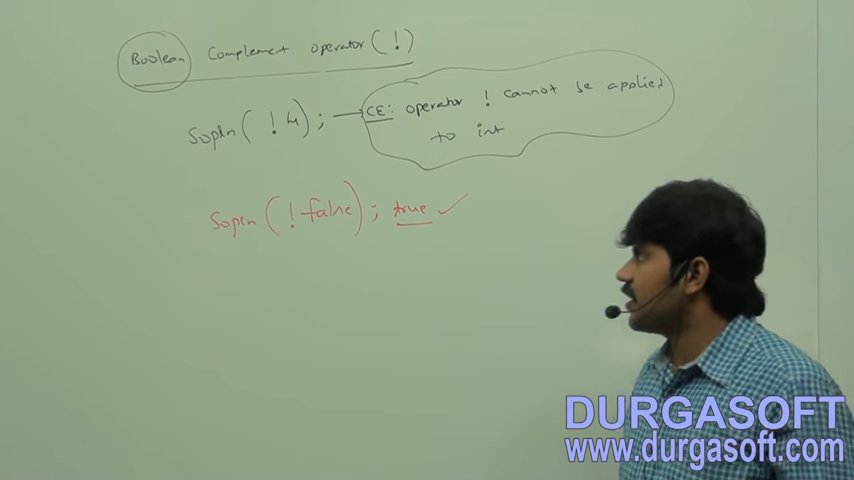 Boolean Complement operator (!)
Sopln( !4 ); → CE: operator ! cannot be applied
to int
Sopln( !false ); true ✓
DURGASOFT
www.durgasoft.com